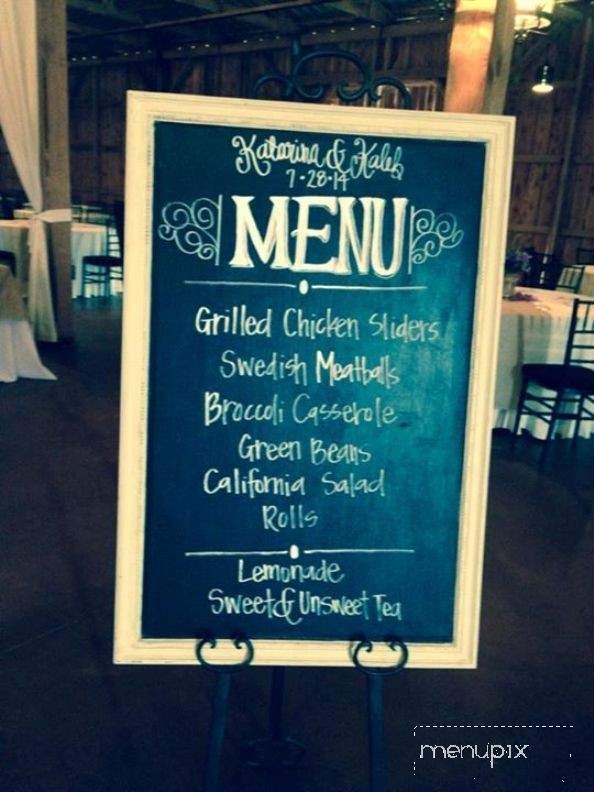 Katarina & Kaleb
7-28-14
MENU
Grilled Chicken Sliders
Swedish Meatballs
Broccoli Casserole
Green Beans
California Salad
Rolls
Lemonade
Sweet & Unsweet Tea
menupix